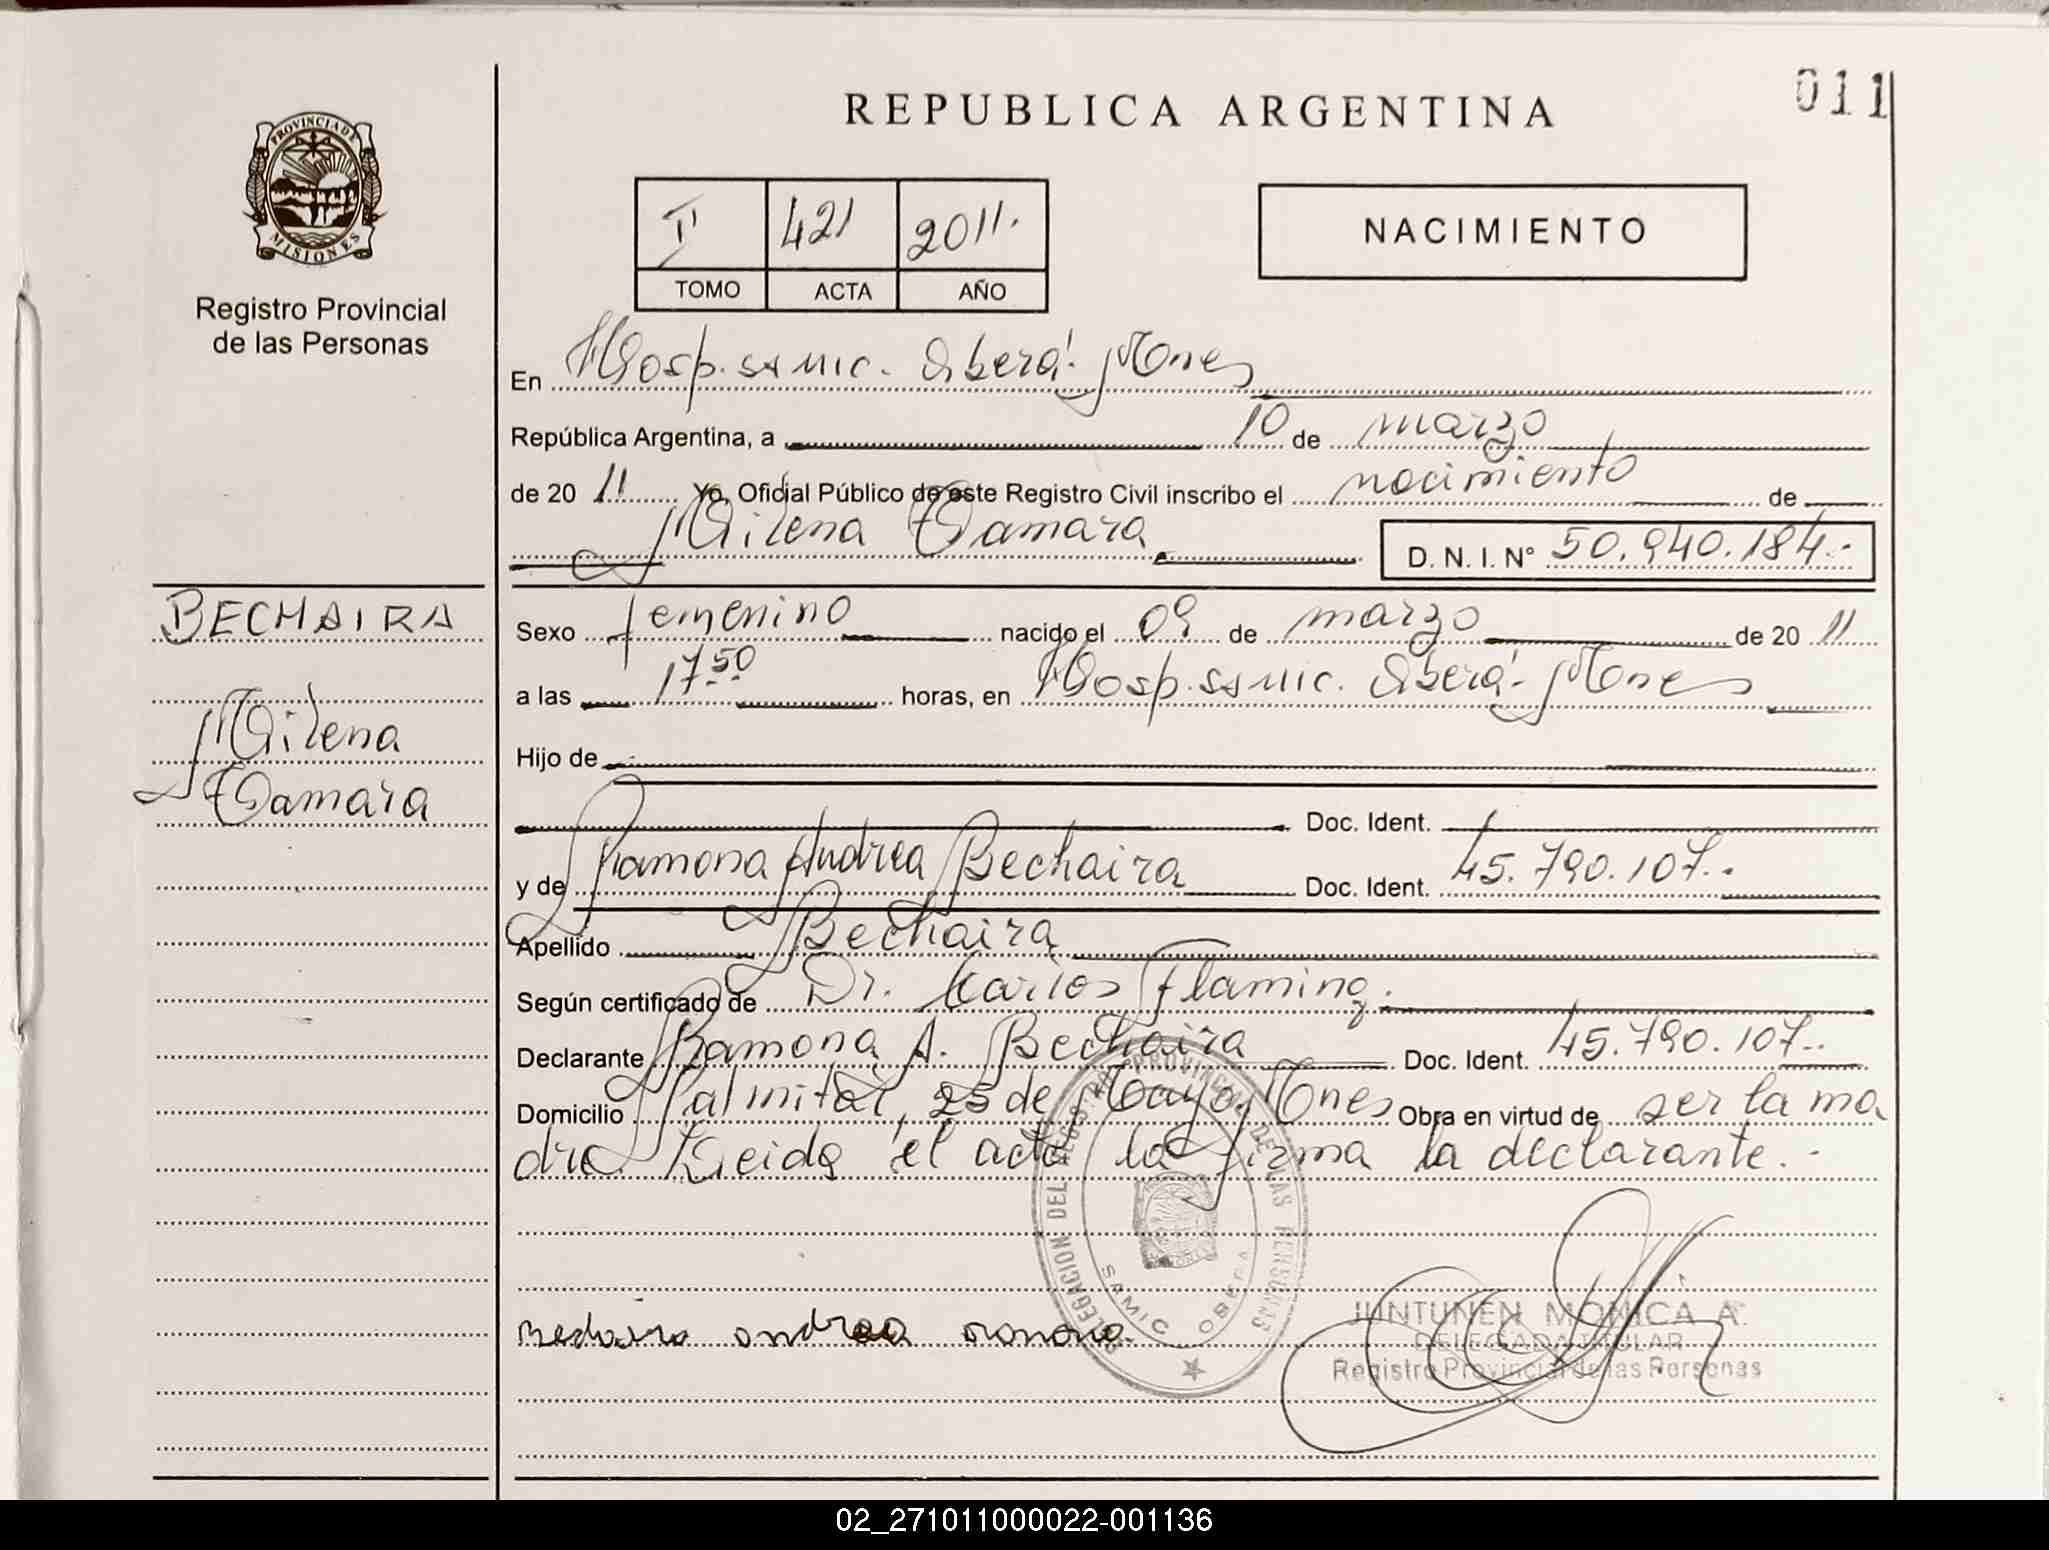 011
REPUBLICA ARGENTINA
PROVINCIA DE
MISIONES
Registro Provincial
de las Personas
II 421 2011.
TOMO ACTA AÑO
NACIMIENTO
En Hosp. SAMIC. Oberá. Mnes
República Argentina, a 10 de marzo
de 20 11 Yo, Oficial Público de este Registro Civil inscribo el nacimiento de
Milena Tamara D. N. I. N° 50.940.184.-
BECHAIRA
Milena
Tamara
Sexo femenino nacido el 09 de marzo de 20 11
a las 17.50 horas, en Hosp. SAMIC. Oberá. Mnes
Hijo de
Doc. Ident.
y de Ramona Andrea Bechaira Doc. Ident. 45.790.107.-
Apellido Bechaira
Según certificado de Dr. Carlos Flaming.
Declarante Ramona A. Bechaira Doc. Ident. 45.790.107.-
Domicilio Palmital, 25 de Mayo, Mnes Obra en virtud de ser la ma
dre. Leida el acta la firma la declarante.-
DELEGACION DEL REGISTRO PROVINCIAL DE LAS PERSONAS
SAMIC OBERA
Bechaira andrea ramona.
JUNTUNEN MONICA A.
DELEGADA TITULAR
Registro Provincial de las Personas
02_271011000022-001136